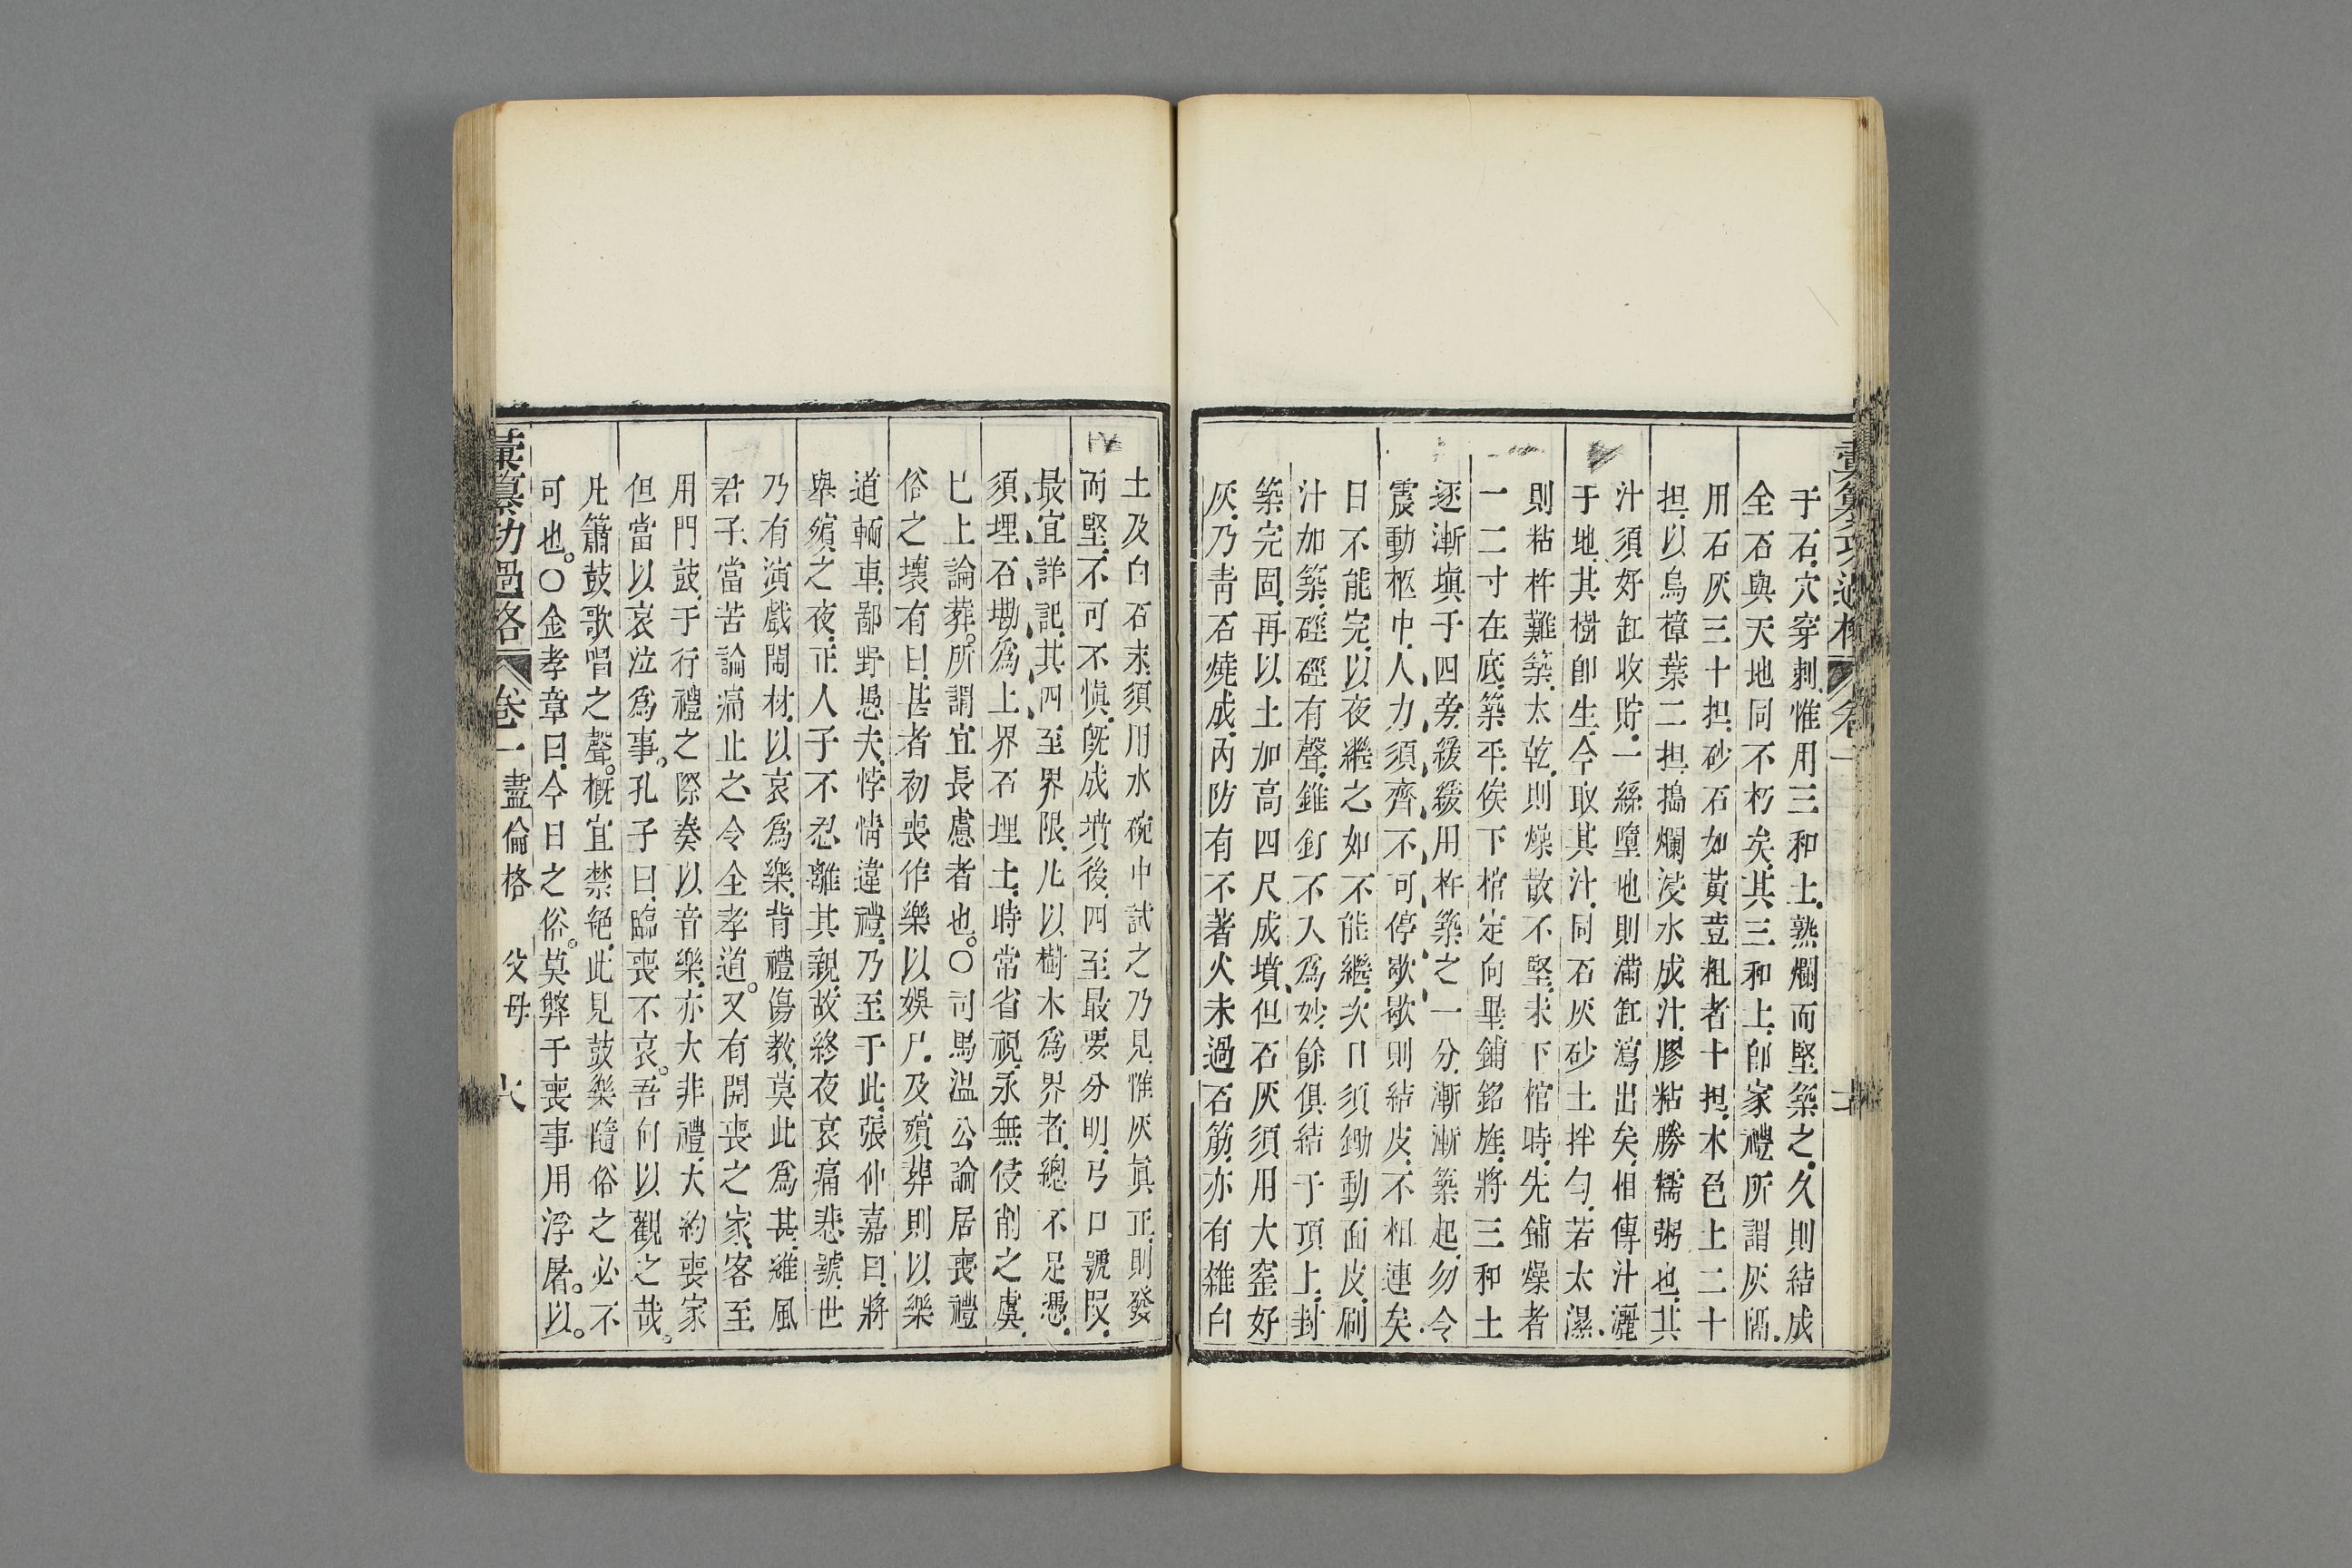 于石穴穿刺惟用三和土熟爛而堅築之久則結成
全石與天地同不朽矣其三和土卽家禮所謂灰隔
用石灰三十担砂石如黃荳粗者十担木色土二十
担以烏樟葉二担搗爛浸水成汁膠粘勝糯粥也其
汁須好缸收貯一絲墮地則滿缸瀉出矣相傳汁灑
于地其樹卽生今取其汁同石灰砂土拌勻若太濕
則粘杵難築太乾則燥散不堅未下棺時先鋪燥者
一二寸在底築平俟下棺定向畢鋪銘旌將三和土
逐漸塡于四旁緩緩用杵築之一分漸漸築起勿令
震動柩中人力須齊不可停歇歇則結皮不相連矣
日不能完以夜繼之如不能繼次日須鋤動面皮刷
汁加築硜硜有聲錐釘不入爲妙餘俱結于頂上封
築完固再以土加高四尺成墳但石灰須用大窰好
灰乃靑石燒成內防有不著火未過石筋亦有雜白
土及白石末須用水碗中試之乃見惟灰眞正則發
而堅不可不愼旣成墳後四至最要分明弓口號段
最宜詳記其四至界限凡以樹木爲界者總不足憑
須埋石勘爲上界石埋土時常省視永無侵削之虞
已上論葬所謂宜長慮者也○司馬溫公論居喪禮
俗之壞有曰甚者初喪作樂以娛尸及殯葬則以樂
道輀車鄙野愚夫悖情違禮乃至于此張仲嘉曰將
舉殯之夜正人子不忍離其親故終夜哀痛悲號世
乃有演戲鬧材以哀爲樂背禮傷教莫此爲甚雖風
君子當苦論痛止之令全孝道又有開喪之家客至
用門鼓于行禮之際奏以音樂亦大非禮大約喪家
但當以哀泣爲事孔子曰臨喪不哀吾何以觀之哉
凡簫鼓歌唱之聲槪宜禁絕此見鼓樂隨俗之必不
可也○金孝章曰今日之俗莫弊于喪事用浮屠以
彙纂功過格 卷一 盡倫格 父母